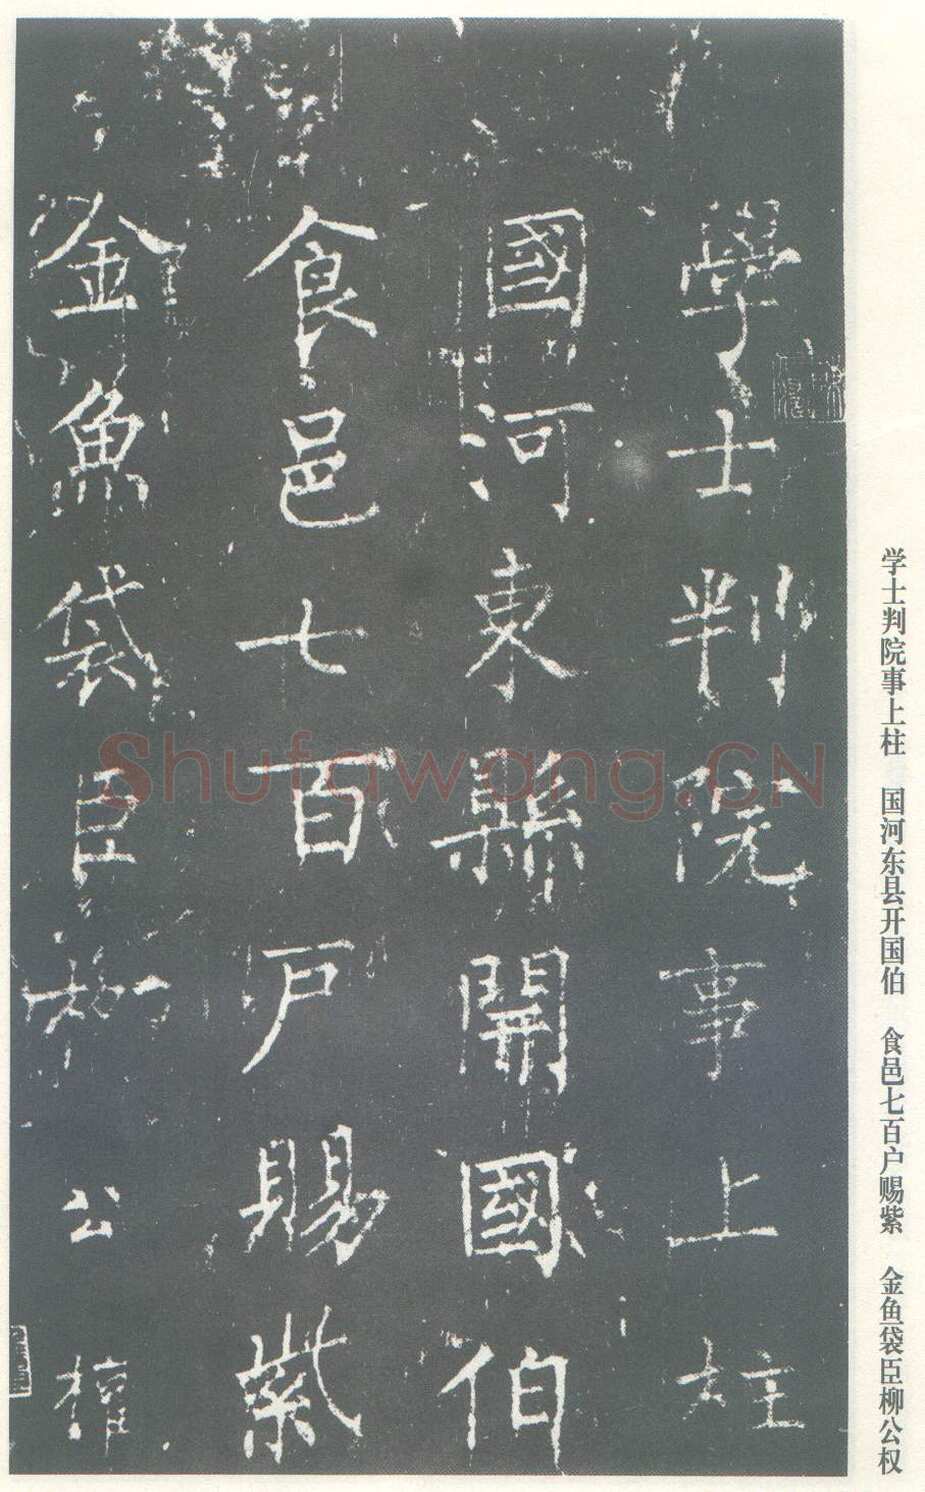 學士判院事上柱
國河東縣開國伯
食邑七百戶賜紫
金魚袋臣柳公權
学士判院事上柱 国河东县开国伯 食邑七百户赐紫 金鱼袋臣柳公权
Shufawang.CN